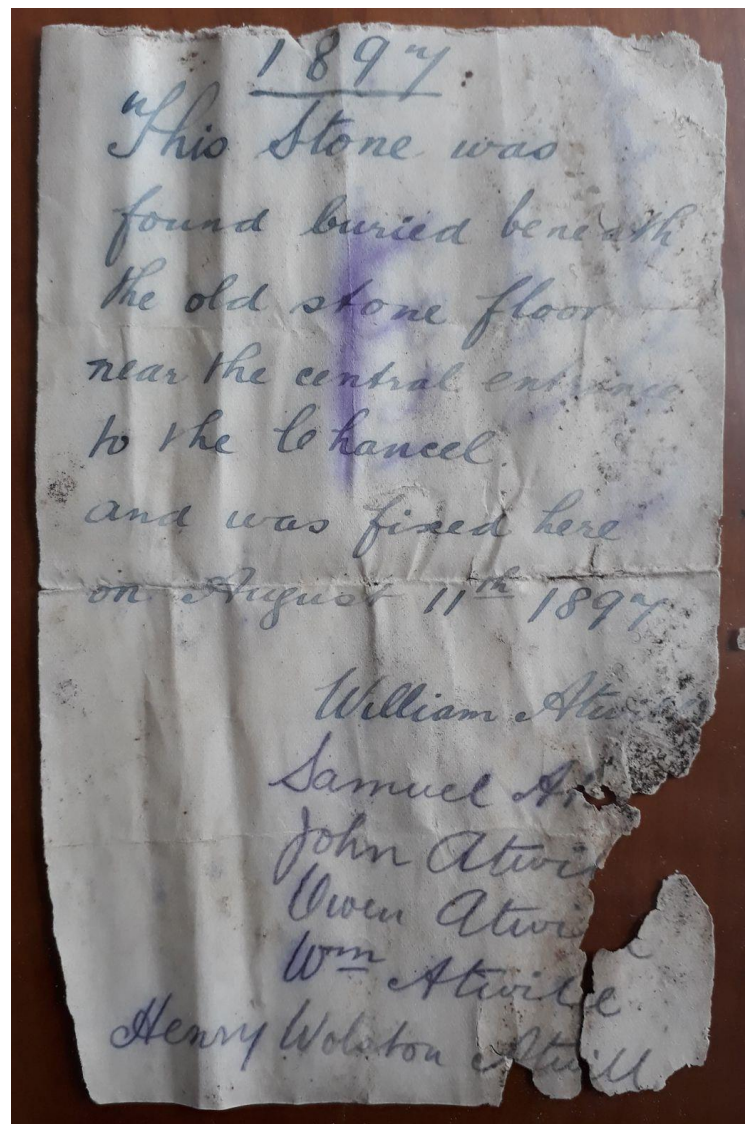 1897.
This Stone was
found buried beneath
the old stone floor
near the central entrance
to the Chancel.
and was fixed here
on August 11th 1897
William
Samuel
John Atwill
Owen Atwill
Wm Atwill
Henry Wolston Atwill